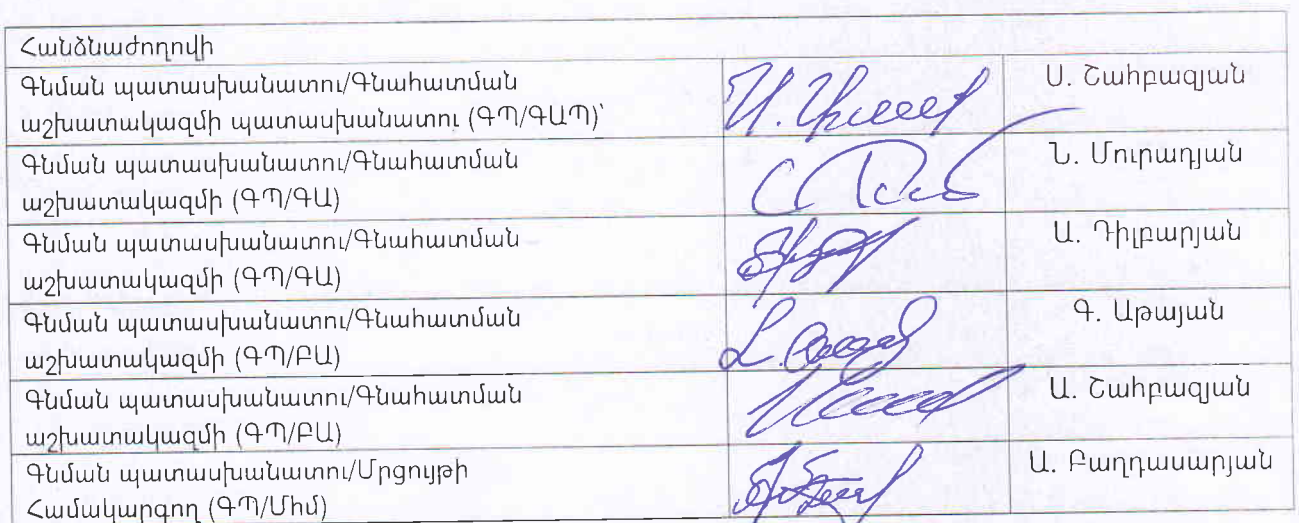 Հանձնաժողովի
Գնման պատասխանատու/Գնահատման
աշխատակազմի պատասխանատու (ԳՊ/ԳԱՊ)՝
Ս. Շահբազյան
Գնման պատասխանատու/Գնահատման
աշխատակազմի (ԳՊ/ԳԱ)
Ն. Մուրադյան
Գնման պատասխանատու/Գնահատման
աշխատակազմի (ԳՊ/ԳԱ)
Ա. Դիլբարյան
Գնման պատասխանատու/Գնահատման
աշխատակազմի (ԳՊ/ԲԱ)
Գ. Աթայան
Գնման պատասխանատու/Գնահատման
աշխատակազմի (ԳՊ/ԲԱ)
Ա. Շահբազյան
Գնման պատասխանատու/Մրցույթի
Համակարգող (ԳՊ/Միմ)
Ա. Բաղդասարյան